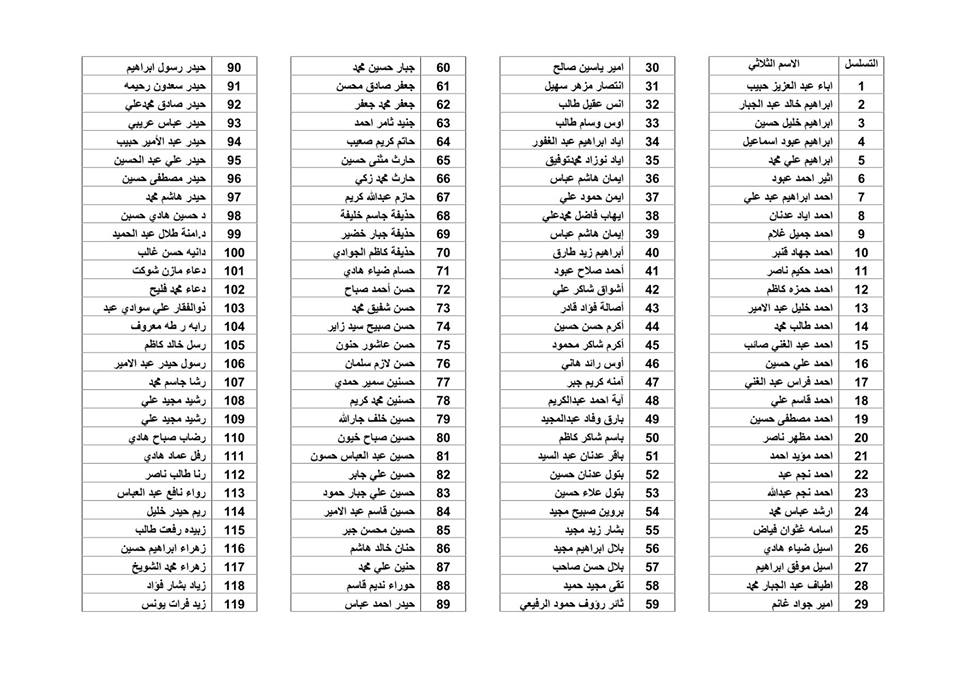 التسلسل الاسم الثلاثي
1 اباء عبد العزيز حبيب
2 ابراهيم خالد عبد الجبار
3 ابراهيم خليل حسين
4 ابراهيم عبود اسماعيل
5 ابراهيم علي محمد
6 اثير احمد عبود
7 احمد ابراهيم عبد علي
8 احمد اياد عدنان
9 احمد جميل غلام
10 احمد جهاد قنبر
11 احمد حكيم ناصر
12 احمد حمزه كاظم
13 احمد خليل عبد الامير
14 احمد طالب محمد
15 احمد عبد الغني صائب
16 احمد علي حسين
17 احمد فراس عبد الغني
18 احمد قاسم علي
19 احمد مصطفى حسين
20 احمد مظهر ناصر
21 احمد مؤيد احمد
22 احمد نجم عبد
23 احمد نجم عبدالله
24 ارشد عباس محمد
25 اسامه غثوان فياض
26 اسيل ضياء هادي
27 اسيل موفق ابراهيم
28 اطياف عبد الجبار محمد
29 امير جواد غانم
30 امير ياسين صالح
31 انتصار مزهر سهيل
32 انس عقيل طالب
33 اوس وسام طالب
34 اياد ابراهيم عبد الغفور
35 اياد نوزاد محمدتوفيق
36 ايمان هاشم عباس
37 ايمن حمود علي
38 ايهاب فاضل محمدعلي
39 إيمان هاشم عباس
40 أبراهيم زيد طارق
41 أحمد صلاح عبود
42 أشواق شاكر علي
43 أصالة فؤاد قادر
44 أكرم حسن حسين
45 أكرم شاكر محمود
46 أوس رائد هاني
47 آمنه كريم جبر
48 آية احمد عبدالكريم
49 بارق وفاد عبدالمجيد
50 باسم شاكر كاظم
51 باقر عدنان عبد السيد
52 بتول عدنان حسين
53 بتول علاء حسين
54 بروين صبيح مجيد
55 بشار زيد مجيد
56 بلال ابراهيم مجيد
57 بلال حسن صاحب
58 تقى مجيد حميد
59 ثائر رؤوف حمود الرفيعي
60 جبار حسين محمد
61 جعفر صادق محسن
62 جعفر محمد جعفر
63 جنيد ثامر احمد
64 حاتم كريم صعيب
65 حارث مثنى حسين
66 حارث محمد زكي
67 حازم عبدالله كريم
68 حذيفة جاسم خليفة
69 حذيفة جبار خضير
70 حذيفة كاظم الجوادي
71 حسام ضياء هادي
72 حسن أحمد صباح
73 حسن شفيق محمد
74 حسن صبيح سيد زاير
75 حسن عاشور حنون
76 حسن لازم سلمان
77 حسنين سمير حمدي
78 حسنين محمد كريم
79 حسين خلف جارالله
80 حسين صباح خيون
81 حسين عبد العباس حسون
82 حسين علي جابر
83 حسين علي جبار حمود
84 حسين قاسم عبد الامير
85 حسين محسن جبر
86 حنان خالد هاشم
87 حنين علي محمد
88 حوراء نديم قاسم
89 حيدر احمد عباس
90 حيدر رسول ابراهيم
91 حيدر سعدون رحيمه
92 حيدر صادق محمدعلي
93 حيدر عباس عريبي
94 حيدر عبد الأمير حبيب
95 حيدر علي عبد الحسين
96 حيدر مصطفى حسين
97 حيدر هاشم محمد
98 د حسين هادي حسين
99 د.امنة طلال عبد الحميد
100 دانيه حسن غالب
101 دعاء مازن شوكت
102 دعاء محمد فليح
103 ذوالفقار علي سوادي عبد
104 رابه ر طه معروف
105 رسل خالد كاظم
106 رسول حيدر عبد الامير
107 رشا جاسم محمد
108 رشيد مجيد علي
109 رشيد مجيد علي
110 رضاب صباح هادي
111 رفل عماد هادي
112 رنا طالب ناصر
113 رواء نافع عبد العباس
114 ريم حيدر خليل
115 زبيده رفعت طالب
116 زهراء ابراهيم حسين
117 زهراء محمد الشويخ
118 زياد بشار فؤاد
119 زيد فرات يونس